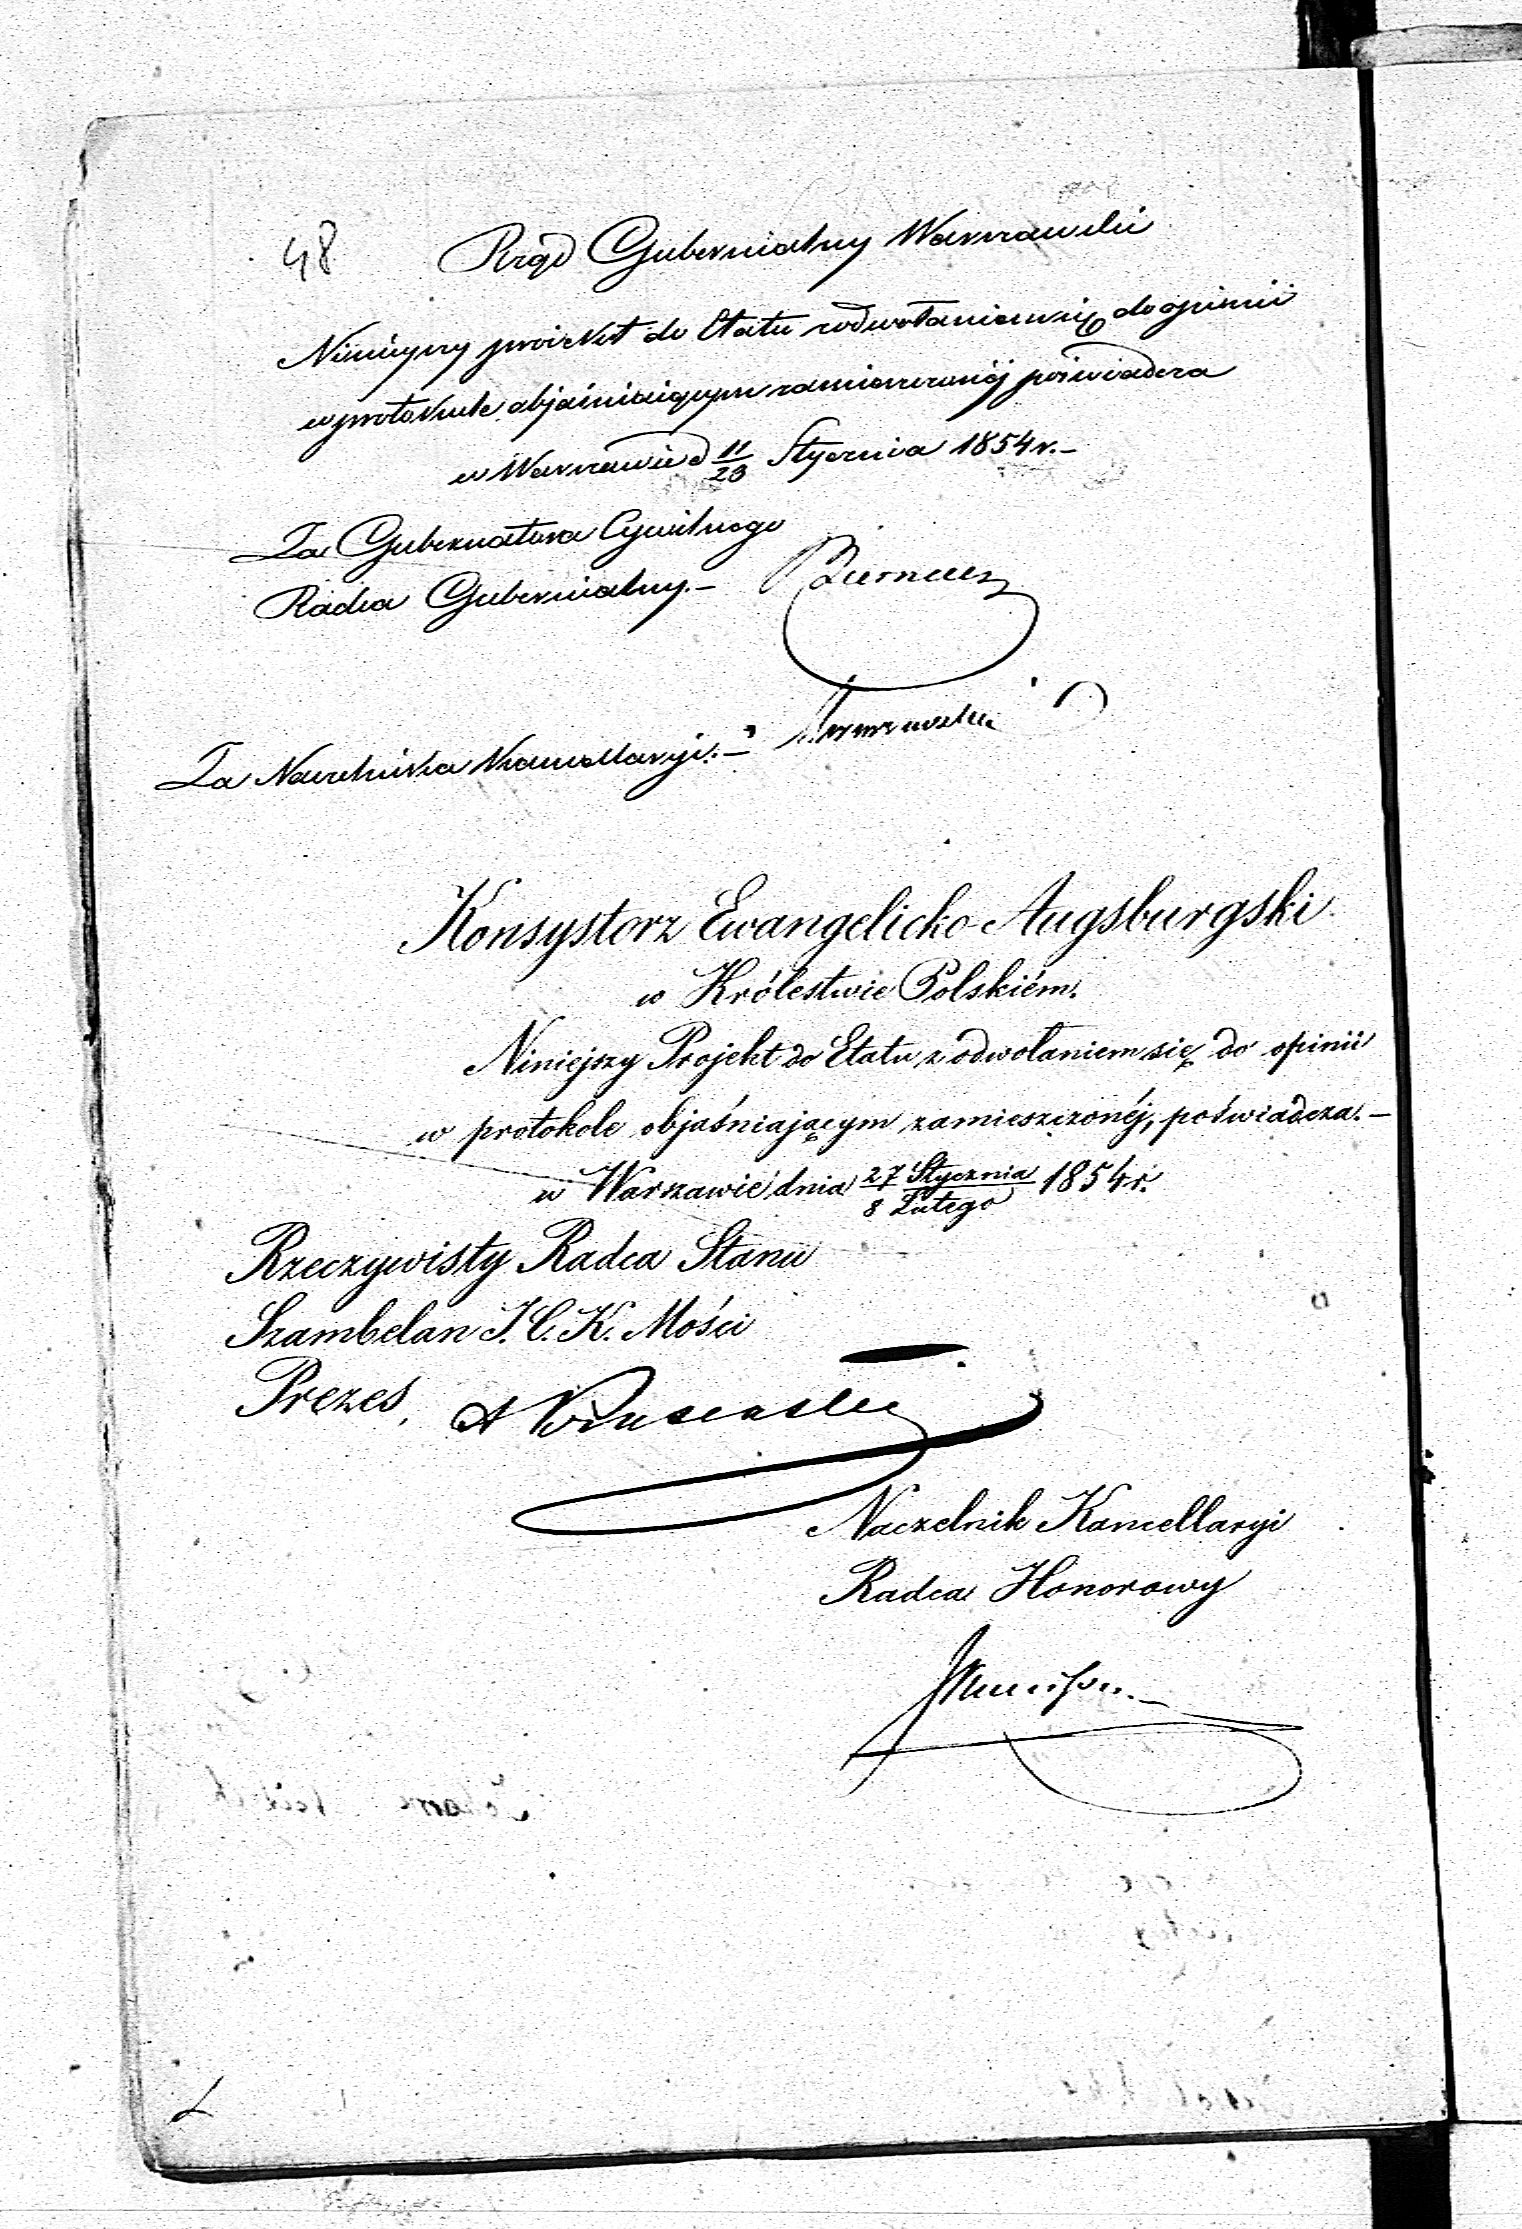 48
Rząd Gubernialny Warszawski
Niniejszy proiekt do Etatu z odwołaniem się do opinii
w protokule objaśniaiącym zamieszczonéj poświadcza
w Warszawie d 11/23 Stycznia 1854 r.–
Za Gubernatora Cywilnego
Radca Gubernialny.–
Za Naczelnika Kancellaryi.–
Konsystorz Ewangelicko-Augsburgski
w Królestwie Polskiém.
Niniejszy Projekt do Etatu z odwołaniem się do opinii
w protokole objaśniającym zamieszczonéj, poświadcza.–
w Warszawie dnia 27 Stycznia/8 Lutego 1854 r.
Rzeczywisty Radca Stanu
Szambelan J. C. K. Mości
Prezes,
Naczelnik Kancellaryi
Radca Honorowy